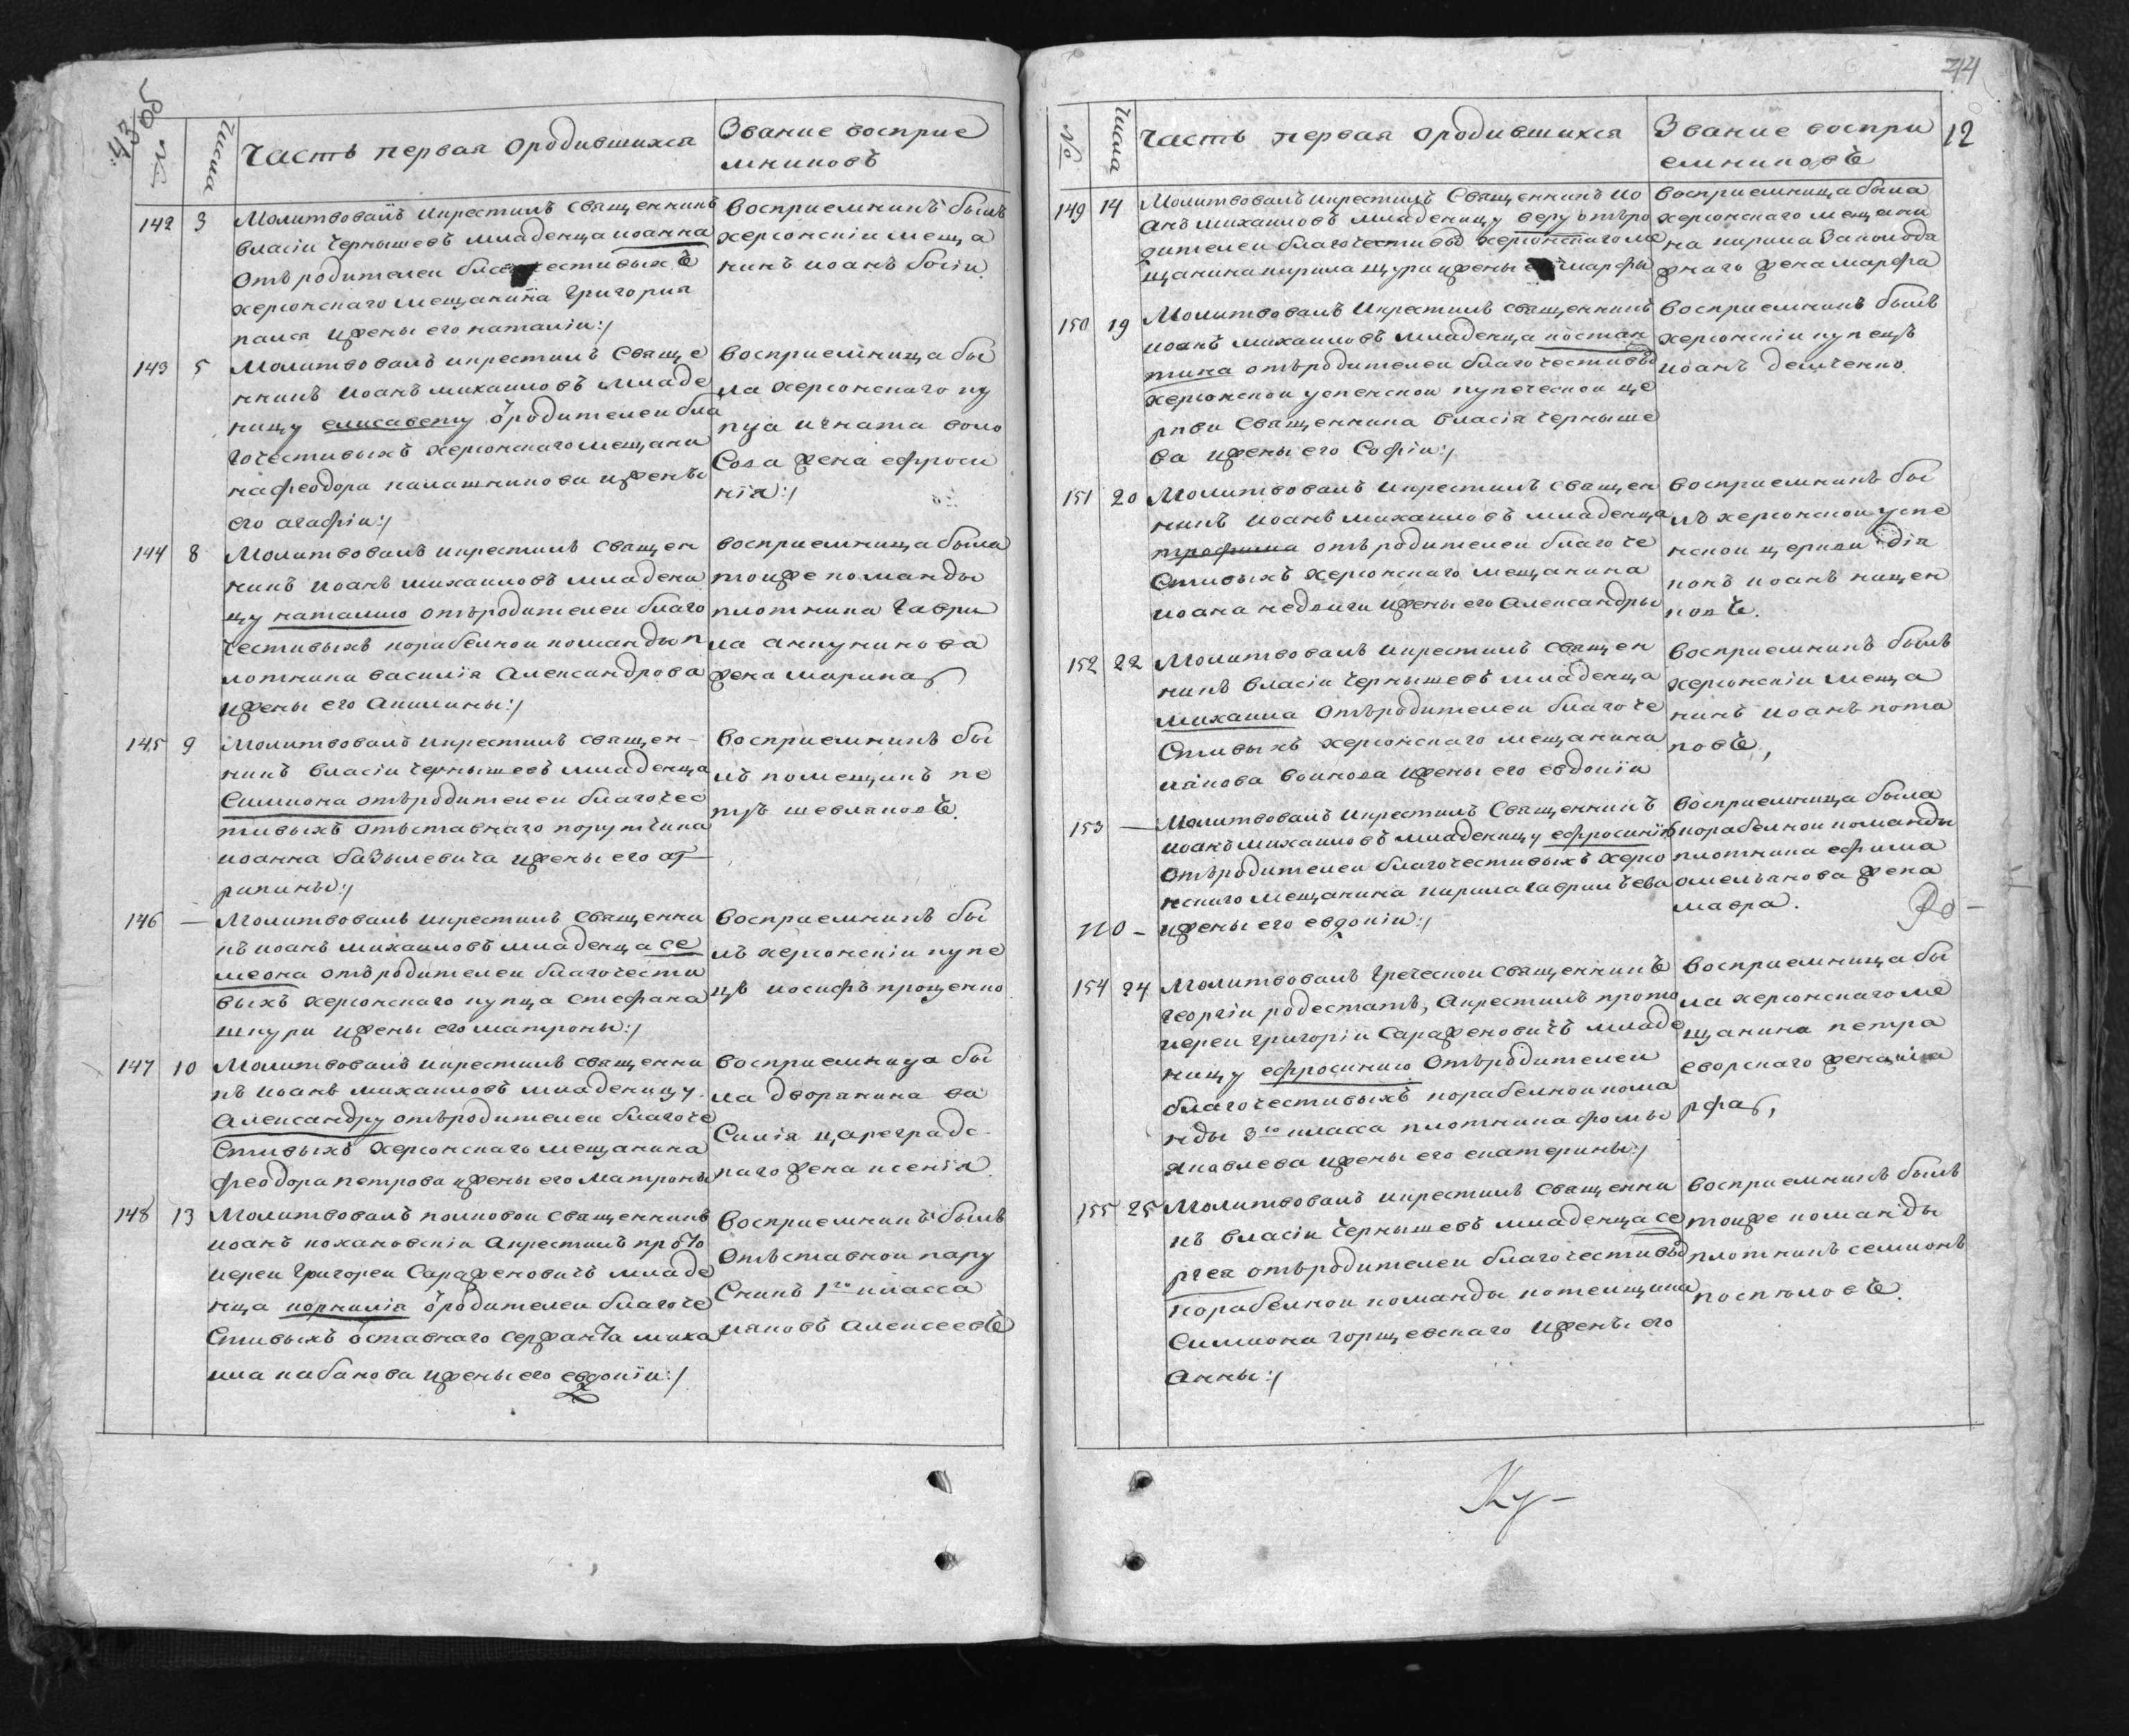 43
№
Числа
Часть первая ородившихся
Звание восприе
мниковъ
142 3
Молитвовалъ икрестилъ священникъ
власіи Чернышевъ младенца иоанна
отъ родителеи благочестивыхъ
херсонскаго мещанина григория
паися ижены его наталіи:/
восприемникъ былъ
херсонскіи меща
нинъ иоанъ
143 5
Молитвовалъ икрестилъ Свяще
нникъ иоанъ михаиловъ младе
ницу елисавету ѿродителеи бла
гочестивыхъ херсонскаго мещани
на феодора калашникова ижены
его агафіи:/
восприемница бы
ла херсонскаго ку
пца игната воло
Сова жена ефроси
нія:/
144 8
Молитвовалъ икрестилъ священ
никъ иоанъ михаиловъ младени
цу наталию отъродителеи благо
честивыхъ корабелнои команды п
лотника василія Александрова
ижены его Акилины:/
восприемница была
тоиже команды
плотника гаври
ла анкуникова
жена марина
145 9
Молитвовалъ икрестилъ священ-
никъ власіи чернышевъ младенца
Симиона отъродителеи благочес
тивыхъ отъставнаго порутчика
иоанна базылевича ижены его аг
рипины:/
восприемникъ бы
лъ помещикъ пе
тръ шевляковъ.
146 —
Молитвовалъ икрестилъ священни
къ иоанъ михаиловъ младенца се
меона отъродителеи благочести
выхъ херсонскаго купца стефана
шкури ижены его матроны:/
восприемникъ бы
лъ херсонскіи купе
цъ иосифъ прощенко
147 10
Молитвовалъ икрестилъ священни
къ иоанъ михаиловъ младеницу
Александру отъродителеи благоче
Стивыхъ херсонскаго мещанина
феодора петрова ижены его матроны
восприемница бы
ла дворянина ва
Силія цареградс-
каго жена ксенія
148 13
Молитвовалъ полковои священникъ
иоанъ кохановскіи Акрестилъ прото
иереи григореи Сарафеновичъ младе
нца корнилія ѿродителеи благоче
Стивыхъ ѿставнаго сержанта миха
ила кабанова ижены его евдокіи:/
восприемникъ былъ
отъставнои пару
Сникъ 1го класса
иаковъ алексеевъ
44
12
№
Числа
Часть первая ородившихся
Звание воспри
емниковъ
149 14
Молитвовалъ икрестилъ Священникъ ио
анъ михаиловъ младеницу веру отъро
дителеи благочестивых херсонскаго ме
щанина кирила щури ижены его марфы
восприемница была
херсонскаго мещани
на кирила
жнаго жена марфа
150 19
Молитвовалъ икрестилъ священникъ
иоанъ михаиловъ младенца костан
тина отъродителеи благочестивых
херсонскои успенскои купеческои це
ркви Священника власія черныше
ва ижены его Софіи:/
восприемникъ былъ
херсонскіи купецъ
иоанъ демченко.
151 20
Молитвовалъ икрестилъ священ
никъ иоанъ михаиловъ младенца
трофима отъродителеи благоче
Стивыхъ херсонскаго мещанина
иоана недвиги ижены его Александры
восприемникъ бы
лъ херсонскои успе
нскои церкви дія
конъ иоанъ нищен
ковъ.
152 22
Молитвовалъ икрестилъ священ
никъ власіи чернышевъ младенца
михаила отъродителеи благоче
Стивыхъ херсонскаго мещанина
иакова воинова ижены его евдокіи
восприемникъ былъ
херсонскіи меща
нинъ иоанъ пота
повъ,
153 —
Молитвовалъ икрестилъ Священникъ
иоанъ михаиловъ младеницу ефросинію
отъродителеи благочестивыхъ херсо
нскаго мещанина кирила гаврилъева
ижены его евдокіи:/
восприемница была
корабелнои команды
плотника ефима
омельянова жена
мавра.
по -
154 24
Молитвовалъ греческои священникъ
георгіи родестатъ, Акрестилъ прото
иереи григоріи Сарафеновичъ младе
ницу ефросинию отъродителеи
благочестивыхъ корабелнои кома
нды 3го класса плотника фомы
яковлева ижены его екатерины:/
восприемница бы
ла херсонскаго ме
щанина петра
еворскаго жена ма
рфа,
155 25
Молитвовалъ икрестилъ священни
къ власіи чернышевъ младенца се
ргея отъродителеи благочестивых
корабелнои команды
Симиона горщевскаго ижены его
Анны:/
восприемникъ былъ
тоиже команды
плотникъ семионъ
костюловъ.
Ку-